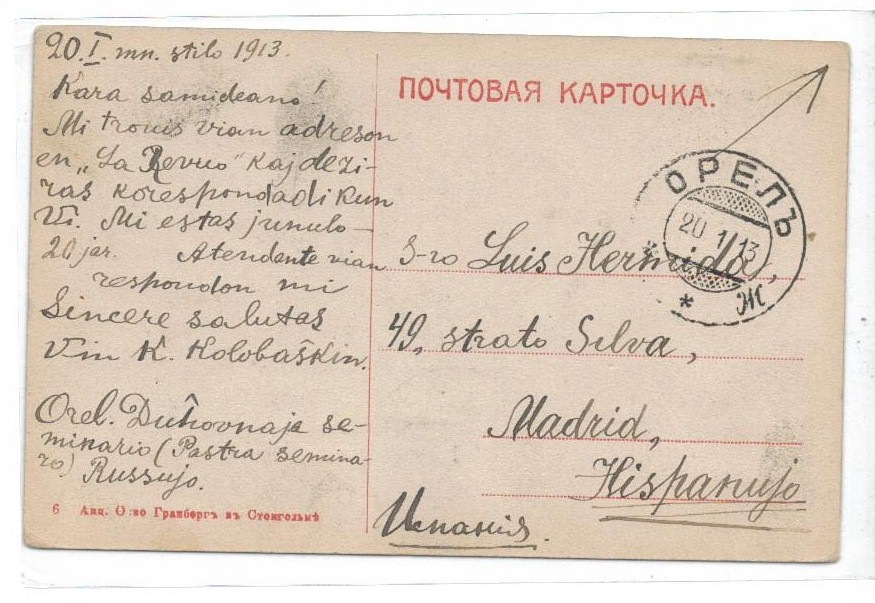 20.I. mn. stilo 1913.
Kara samideano!
Mi trovis vian adreson
en „La Revuo" kaj dezi-
ras korespondadi kun
Vi. Mi estas junulo –
20 jar. Atendante vian
respondon mi
Sincere salutas
Vin K. Kolobaŝkin.
Orel. Duĥovnaja se-
minario (Pastra semina-
ro) Russujo.
6 Акц. О-во Гранбергъ въ Стокгольмѣ
ПОЧТОВАЯ КАРТОЧКА.
ОРЕЛЪ
20 1 13
Ж
S-ro Luis Hernida,
49, strato Silva,
Madrid,
Hispanujo
Испанія.